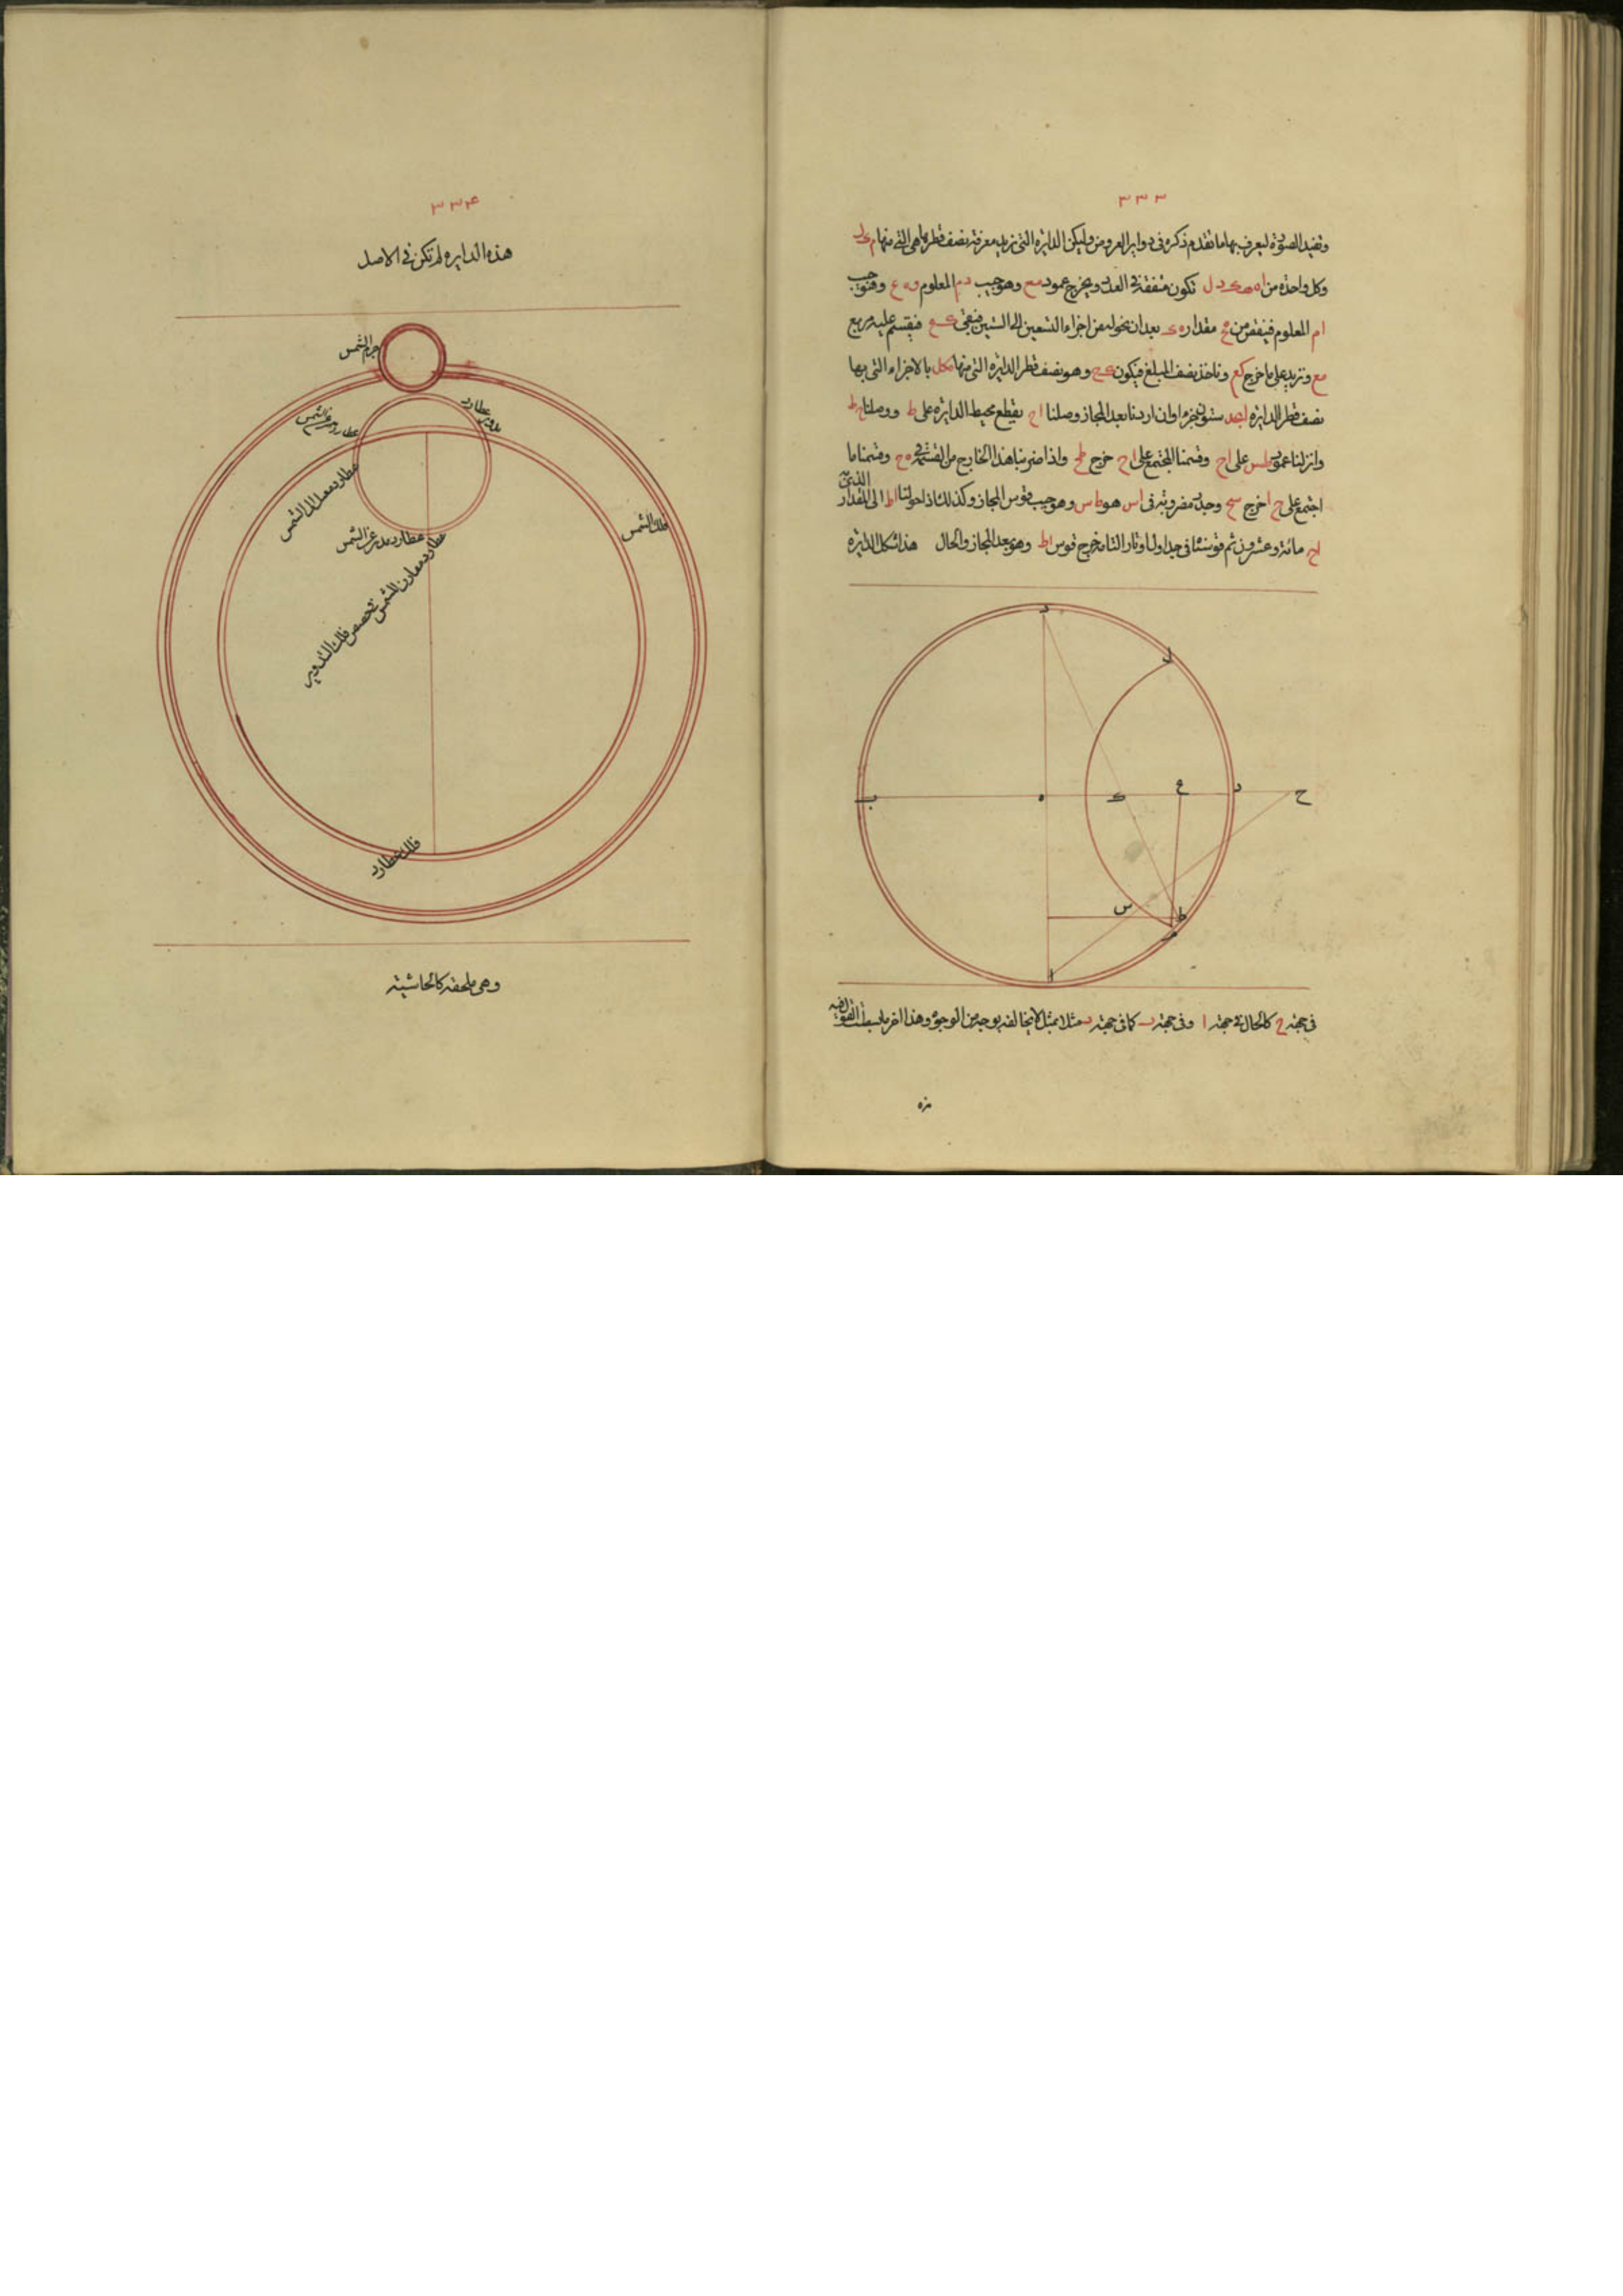 ٣٣٣
ونعيد الصورة ليعرف بها ما تقدم ذكره فى دواير العروض وليكن الدايرة التى نريد معرفة نصف قطرها هى التى منها م ك ل
وكل واحدة من ا م ه ك د ل تكون متفقة فى العدد ويخرج عمود مع وهو جيب د م المعلوم و ه ع وهو جيب
ا م المعلوم فينقص من مقدار ه ك بعد ان نحوله من اجزاء التسعين الى الستين فيبقى ك ع فيقسم عليه مربع
مع ونزيد على ما خرج كع وناخذ نصف المبلغ فيكون وهو نصف قطر الدايرة التى منها مكل بالاجزاء التى بها
نصف قطر الدايرة ابجد ستون جزءا وان اردنا بعد المجاز وصلنا اح يقطع محيط الدايرة على ط ووصلنا
وانزلنا عمود طس على اح وقسمنا المجتمع على اح خرج طح واذا ضربنا هذا الخارج من القسمة فى ه ح وقسمنا ما
اجتمع على ح ا خرج سح وحده مضروبة فى اس هو ط س وهو جيب قوس المجاز وكذلك اذا حولنا اط الى المقدار الذى به
اح مائة وعشرون ثم قوسناه فى جداول اوتار التامة خرج قوس اط وهو بعد المجاز والحال هذا شكل الدايرة
د
ل
ب
ه
ك
ع
د
ح
س
ط
م
ا
فى جهة ح كالحال فى جهة ا وفى جهة ب كما فى جهة د مثلا بمثل لا يخالفه بوجه من الوجوه وهذا اخر ما بسطت القول فيه
٣٣۴
هذه الدايره لم تكن فى الاصل
جرم الشمس
تدوير عطارد
فلك الشمس
فلك عطارد
وهى ملحقه كالحاشية